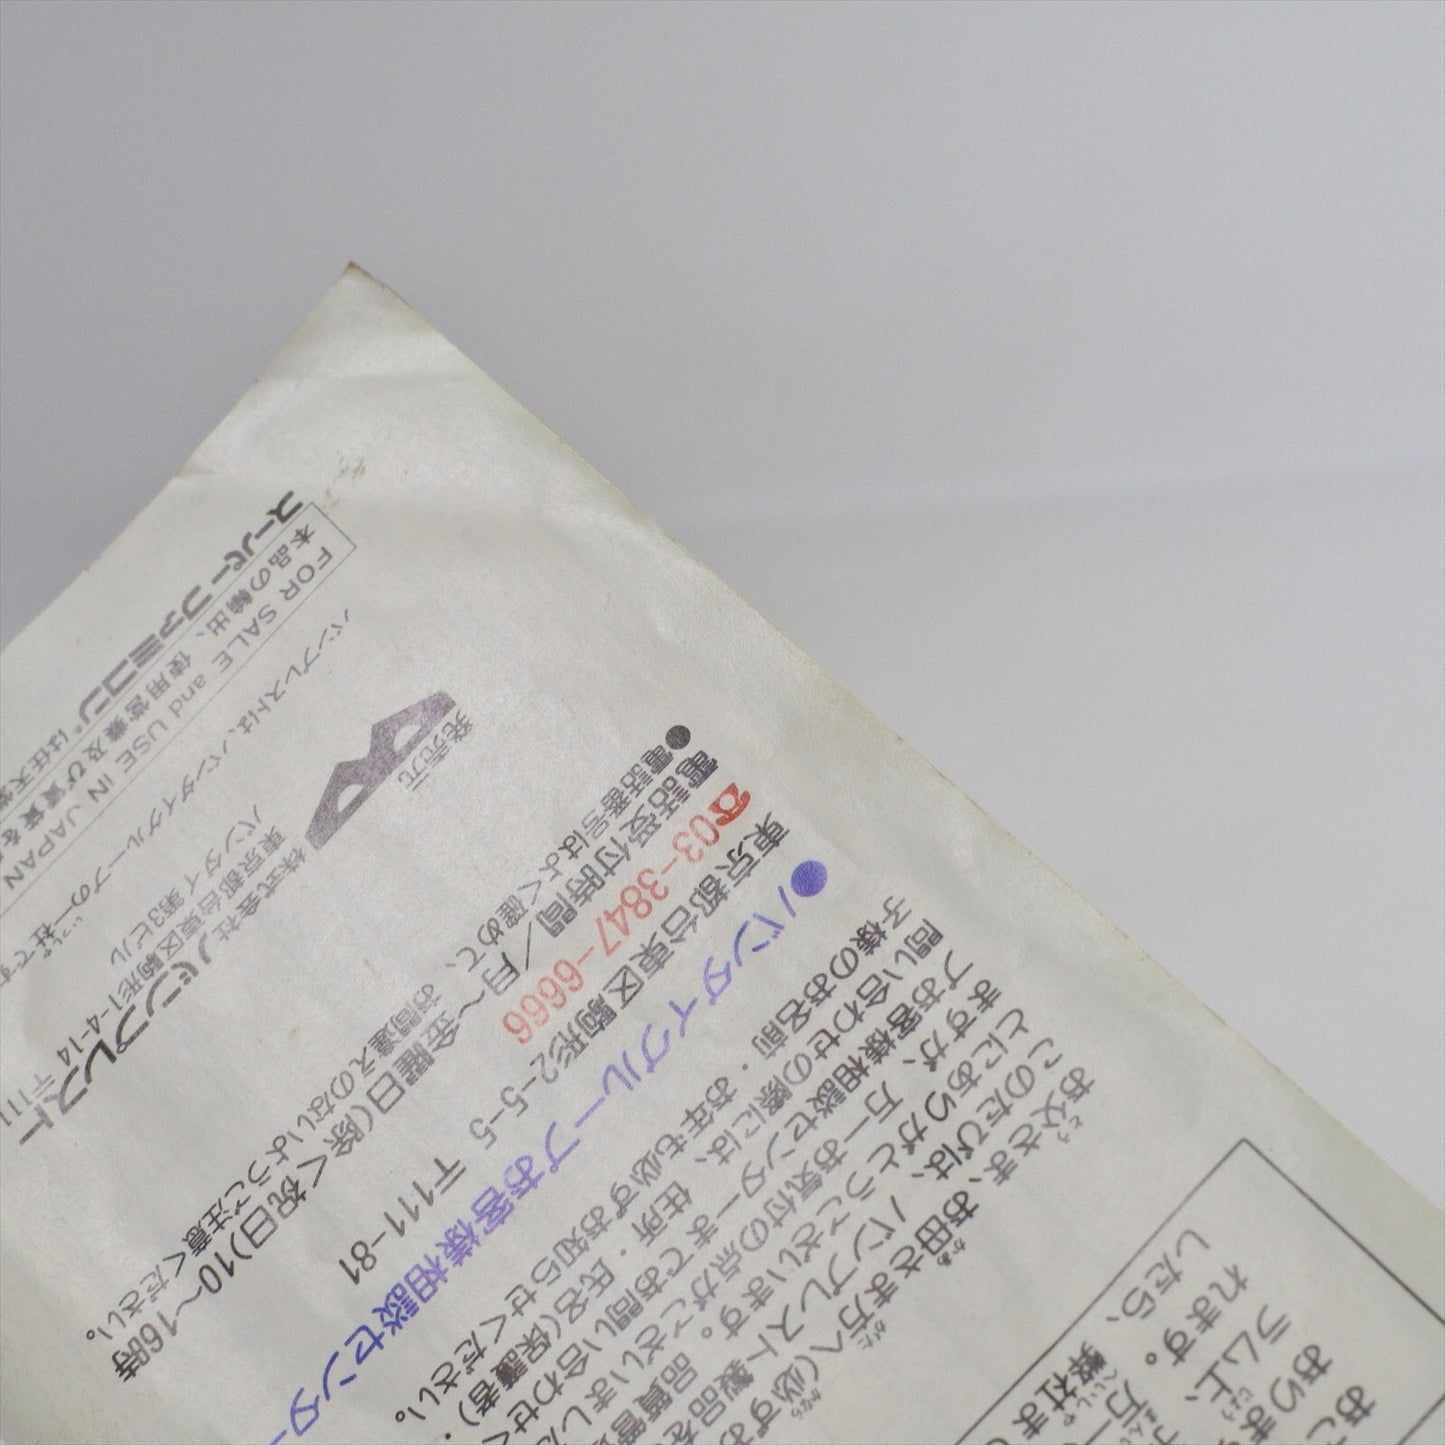 おこ
あらま
ラム上、
れます。万一
したら、弊社ま
お父さま、お母さま方へ(必ずお
このたびは、バンプレスト製品を
とにありがとうございます。品質管
ますが、万一お気付の点がございました
お客様相談センターまでお問い合わせく
問い合わせの際には、住所・氏名(保護者)・
子様のお名前・お年も必ずお知らせください。
●バンダイグループお客様相談センター
東京都台東区駒形2-5-5 〒111-81
☎03-3847-6666
●電話受付時間/月~金曜日(除く祝日)10~16時
●電話番号はよく確めて、お間違えのないようご注意ください。
発売元
株式会社バンプレスト
東京都台東区駒形1-4-14 〒111
バンダイ第3ビル
バンプレストは、バンダイグループの一社です
FOR SALE and USE IN JAPAN
本品の輸出、使用営業及び賃貸を
スーパーファミコン®は任天堂